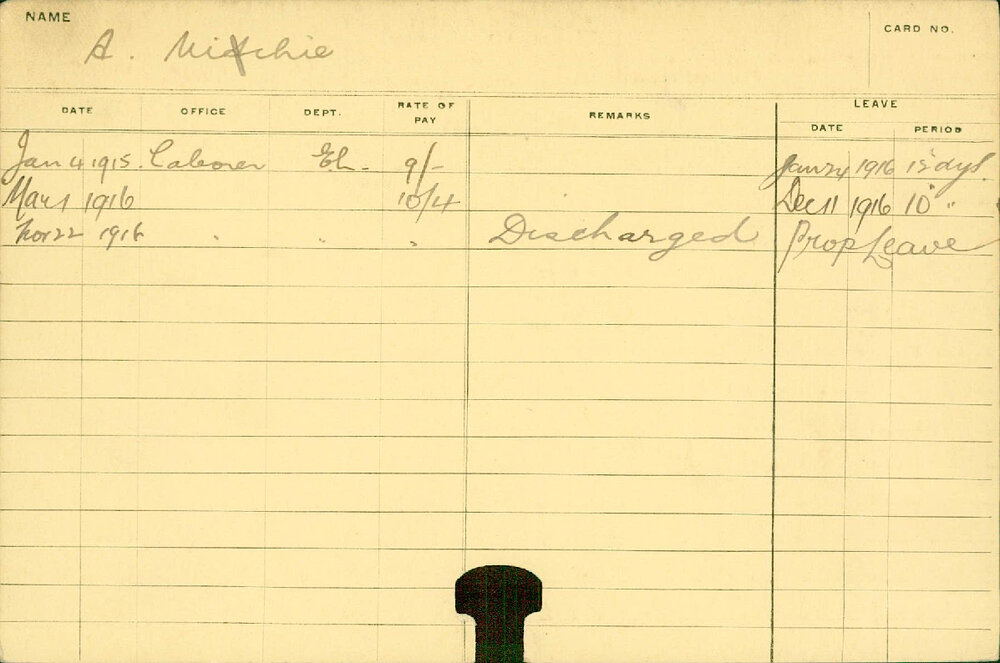 NAME
A. Mitchie
CARD NO.
DATE OFFICE DEPT. RATE OF PAY REMARKS LEAVE
DATE PERIOD
Jan 4 1915. Laborer El. 9/- Jan 24 1916 12 dys.
Mar 1 1916 10/4 Dec 11 1916 10 "
Nov 22 1916 " " " Discharged Prop Leave